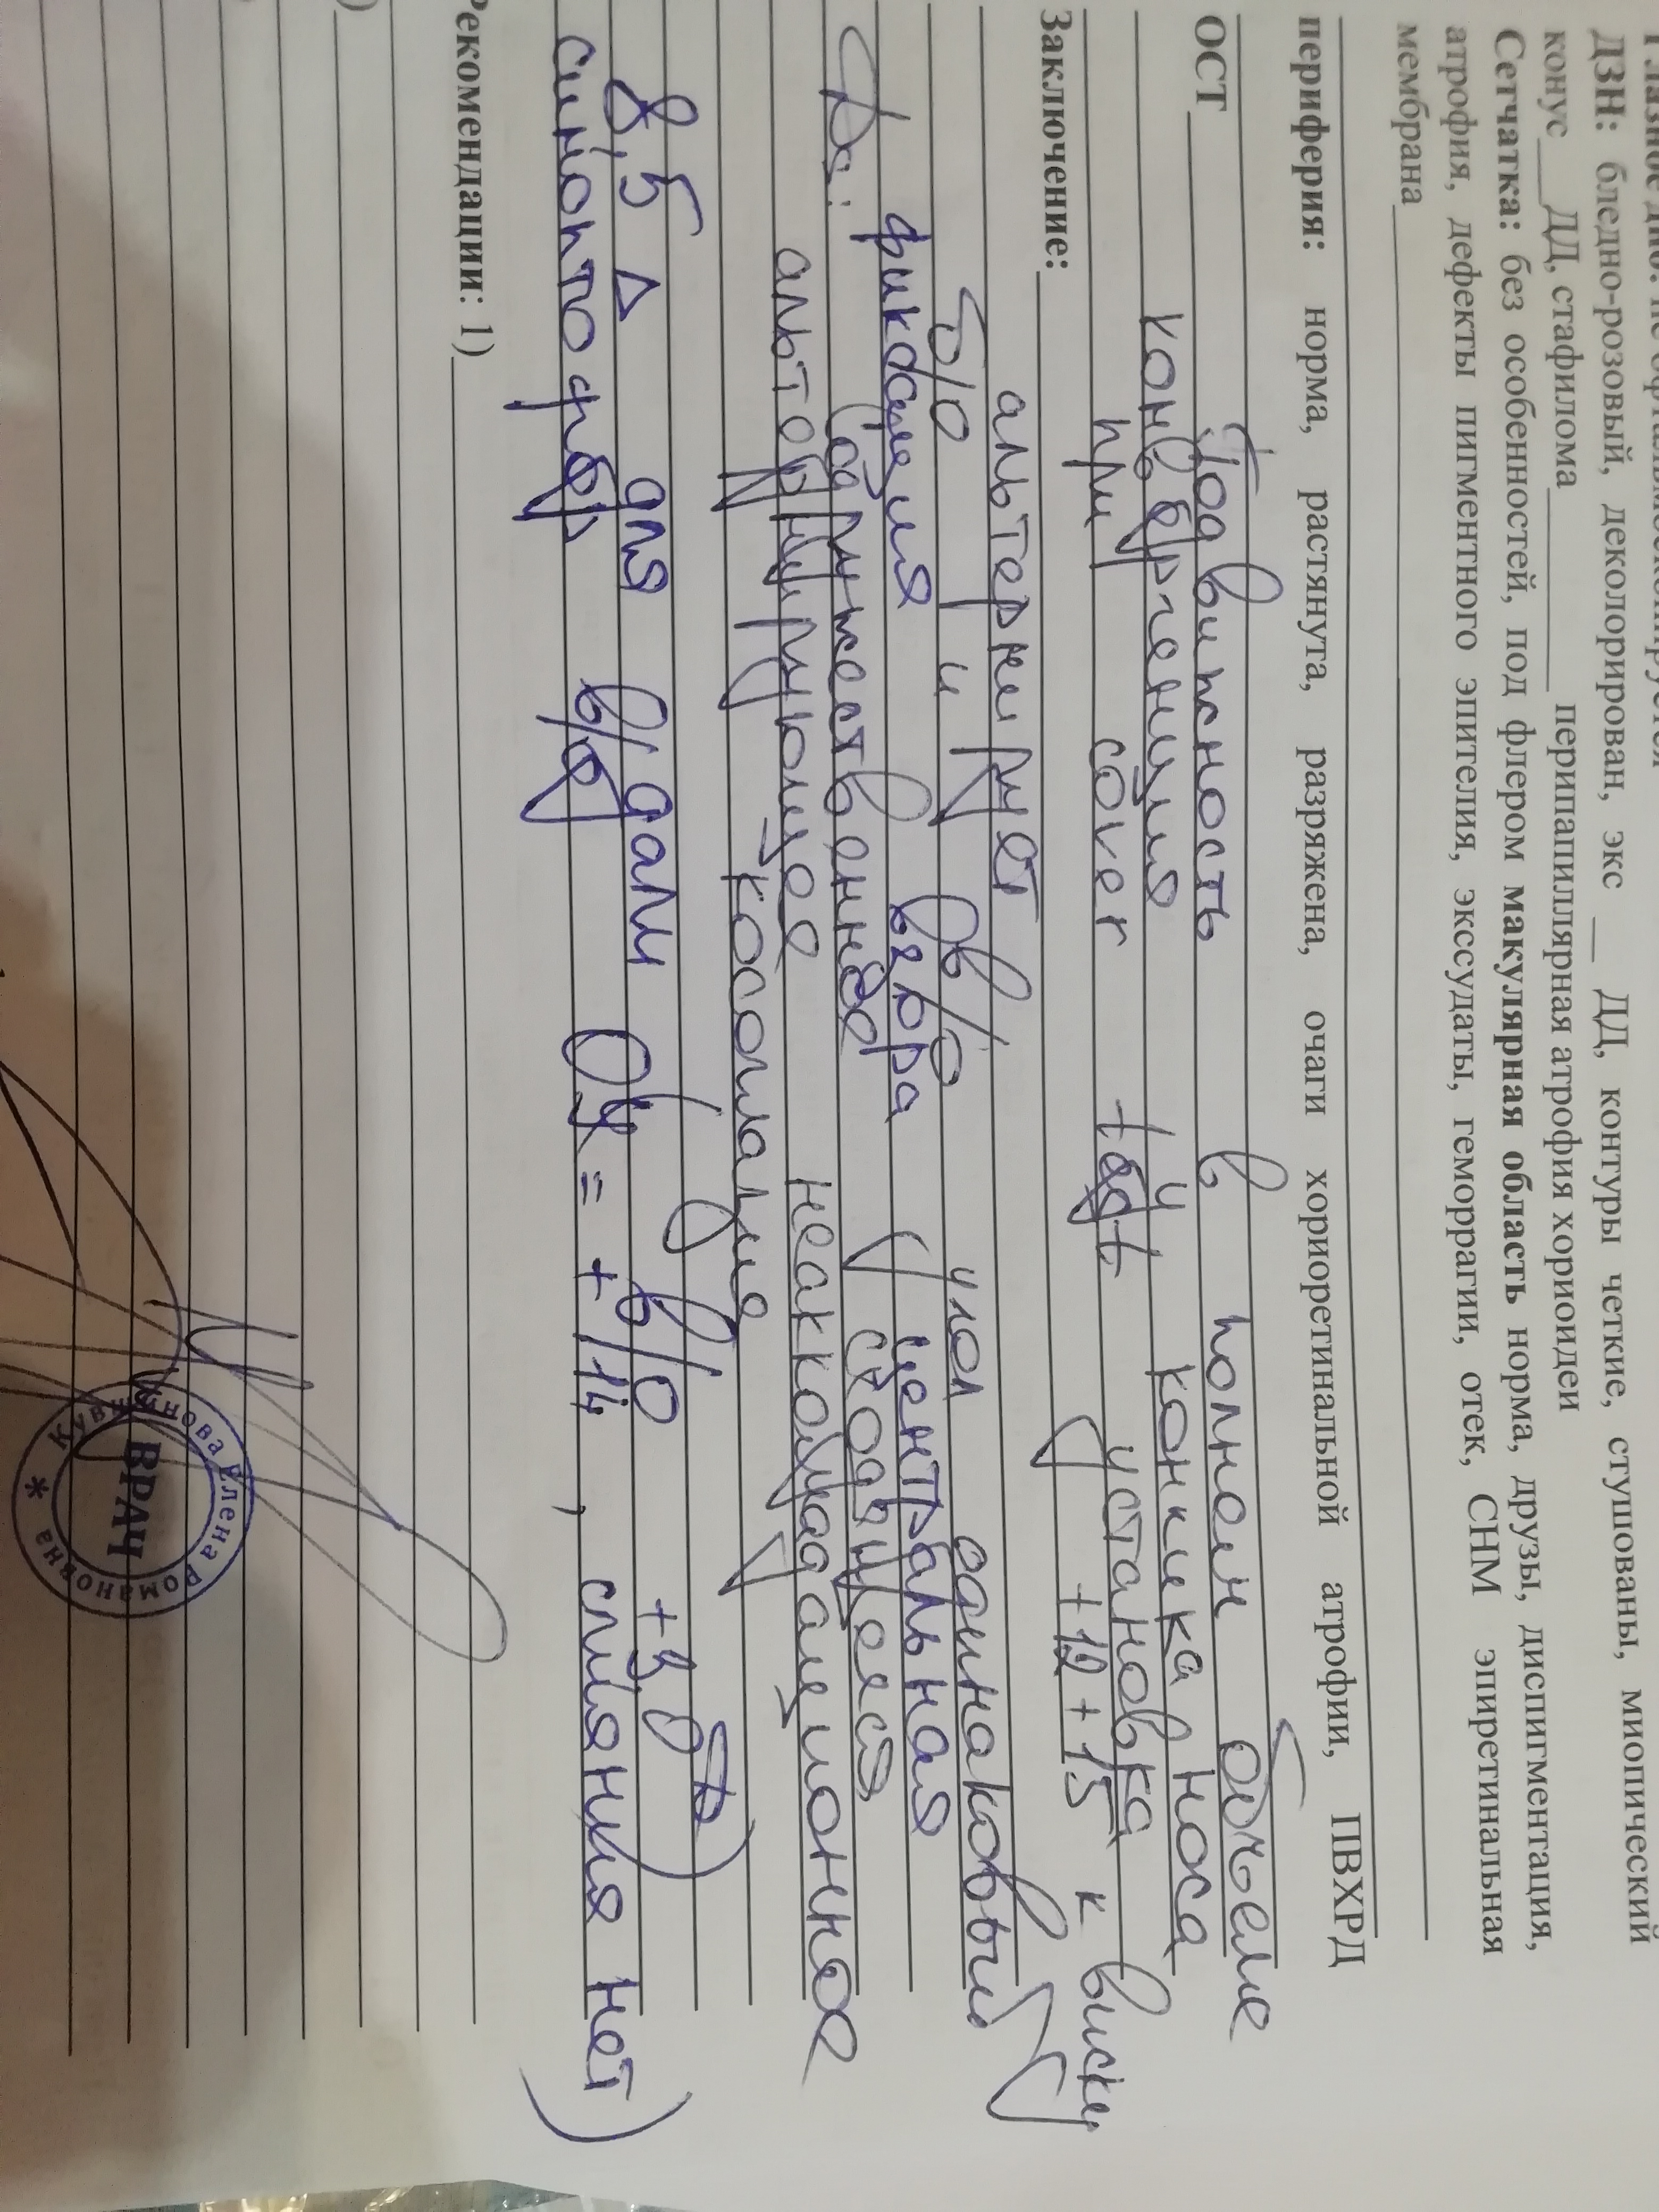 ДЗН: бледно-розовый, деколорирован, экс __ ДД, контуры четкие, стушованы, миопический
конус ___ДД, стафилома __________ перипапиллярная атрофия хориоидеи
Сетчатка: без особенностей, под флером макулярная область норма, друзы, диспигментация,
атрофия, дефекты пигментного эпителия, экссудаты, геморрагии, отек, СНМ эпиретинальная
мембрана
периферия: норма, растянута, разряжена, очаги хориоретинальной атрофии, ПВХРД
ОСТ Подвижность в полном объеме
конвергенция у кончика носа
при cover test установка к виску
Заключение: +12 +15
альтернирует угол одинаковый
б/о и в/о
фиксация взора центральная
Ds: Содружественное сходящееся
альтернирующее неаккомодационное
косоглазие
8,5 Δ для в/дали
синоптофор б/о ОУ = +14, слияния нет)
Рекомендации: 1)
Елена Романовна
ВРАЧ